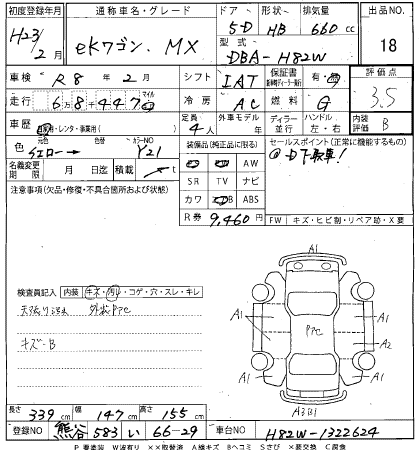 初度登録年月 通称車名・グレード ドア 形状 排気量 出品NO.
H23/2月 eKワゴン. MX 5D HB 660cc 18
型式 DBA-H82W
車検 R8年2月 シフト IAT 保証書 有・無 評価点
走行 68447 マイル 冷房 AC 燃料 G 3.5
車歴 自家用・レンタ・事業用( ) 定員 4人 外車モデル 年 ディーラー 並行 ハンドル 左・右 内装評価 B
色 元色 イエロー 色替 カラーNO Y21 装備品(純正品に限る) セールスポイント(正常に機能するもの)
名義変更期限 月 日迄 積載 t AW
注意事項(欠品・修復・不具合箇所および状態) SR TV ナビ
カワ ABS
R券 9,460円 FW キズ・ヒビ割・リペア跡・X要
検査員記入 内装 キズ・汚れ・コゲ・穴・スレ・キレ
天張り汚れ 外装PTC
キズ-B
A1
A1 A1
A1 PTC A2
A1 A1
A3B1
長さ 339cm 幅 147cm 高さ 155cm
登録NO 熊谷 583 い 66-29 車台NO H82W-1322624
P 要塗装 W波有り ××取替済 A線キズ Bヘコミ Sさび ×要交換 C腐食